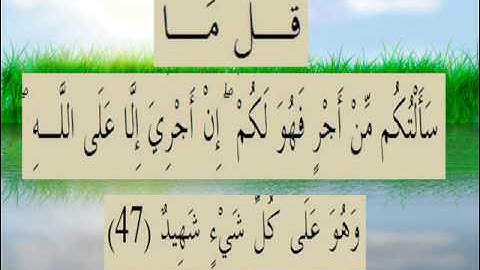 قل مَا
سَأَلْتُكُم مِّنْ أَجْرٍ فَهُوَ لَكُمْ ۖ إِنْ أَجْرِيَ إِلَّا عَلَى اللَّهِ ۖ
وَهُوَ عَلَى كُلِّ شَيْءٍ شَهِيدٌ (47)